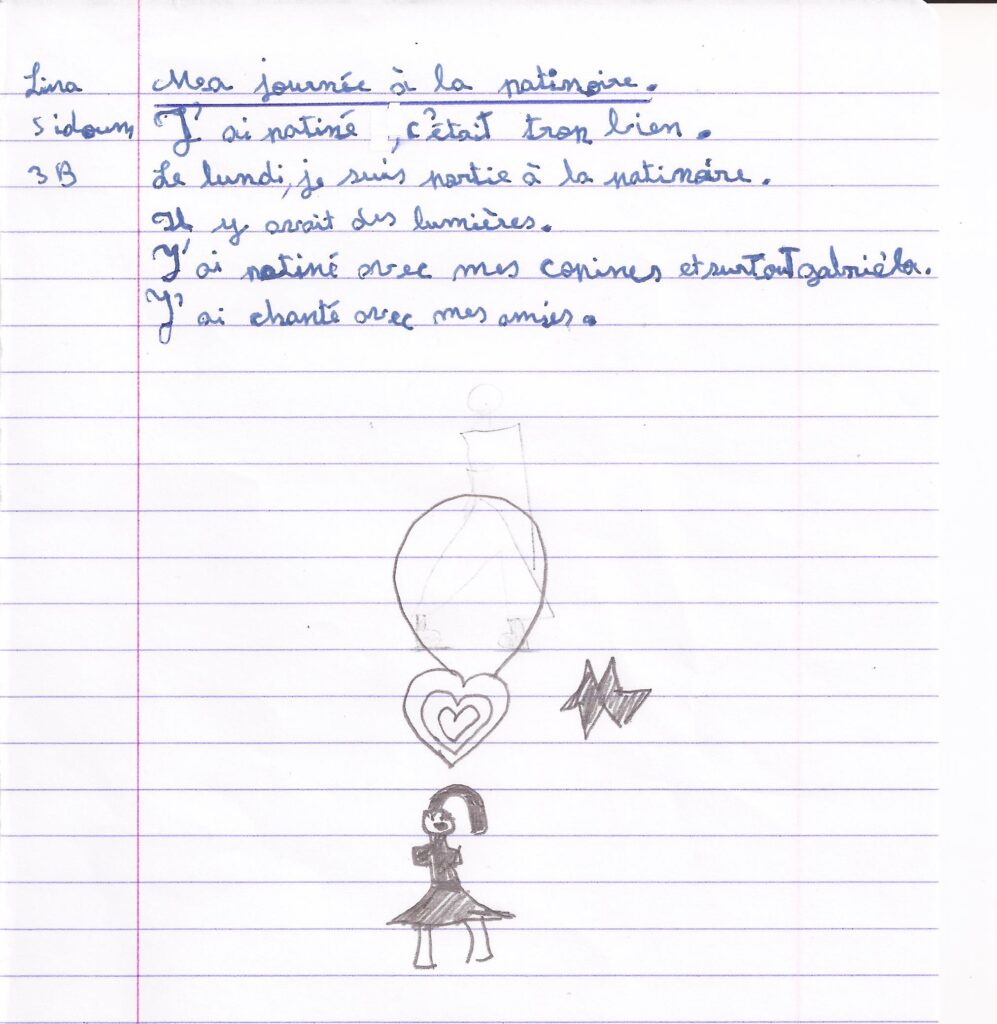 Lina Mea journée à la patinoire.
Sidoum J'ai patiné, c'était trop bien.
3B Le lundi, je suis partie à la patinoire.
Il y avait des lumières.
J'ai patiné avec mes copines et surtout gabriéla.
J'ai chanté avec mes amies.